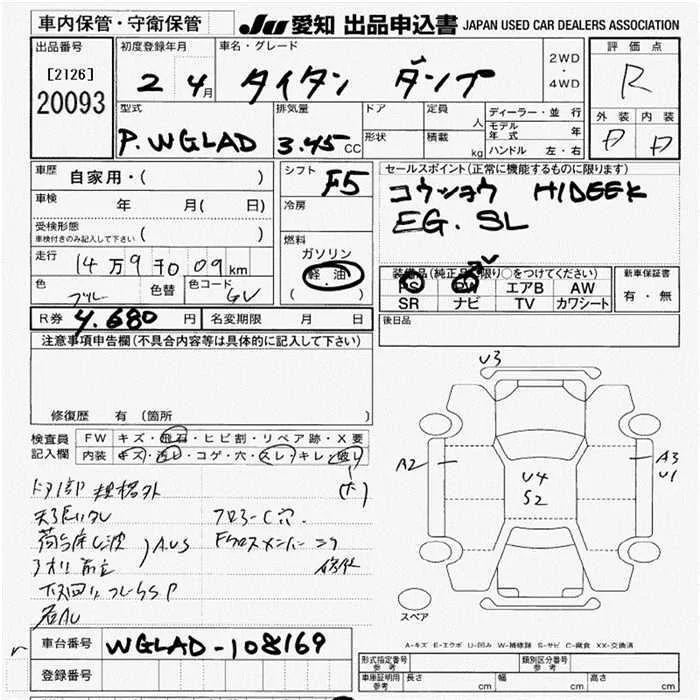 車内保管・守衛保管
JU 愛知 出品申込書 JAPAN USED CAR DEALERS ASSOCIATION
出品番号
[2126]
20093
初度登録年月
2 4月
車名・グレード
タイタン ダンプ
2WD
・
4WD
評価点
R
外装 内装
型式
P.WGLAD
排気量
3.45 CC
ドア
形状
定員 人
積載 kg
ディーラー・並行
モデル年式 年
ハンドル 左・右
車歴
自家用・( )
車検 年 月( 日)
受検形態
車検付きのみ記入して下さい ( )
走行
14万9千009km
色
色替
色コード
シフト
F5
冷房
燃料
ガソリン
軽油
( )
セールスポイント(正常に機能するものに限ります)
コウショウ HIDEEK
EG. SL
装備品(純正品に限り○をつけてください)
PS PW エアB AW
SR ナビ TV カワシート
新車保証書
有・無
R券 4.680円
名変期限 月 日
後日品
注意事項申告欄(不具合内容等は具体的に記入して下さい)
修復歴 有(箇所 )
検査員
記入欄
FW キズ・飛石・ヒビ割・リペア跡・X要
内装 キズ・汚レ・コゲ・穴・スレ・キレ・破レ
規格外
フロアーC穴
AUS
U3
A2
U4
S2
A3
U1
スペア
A-キズ E-エクボ U-凹み W-補修跡 S-サビ C-腐食 XX-交換済
車台番号
WGLAD-108169
登録番号
形式指定番号
参考
類別区分番号
参考
車庫証明用
参考
長さ cm
幅 cm
高さ cm